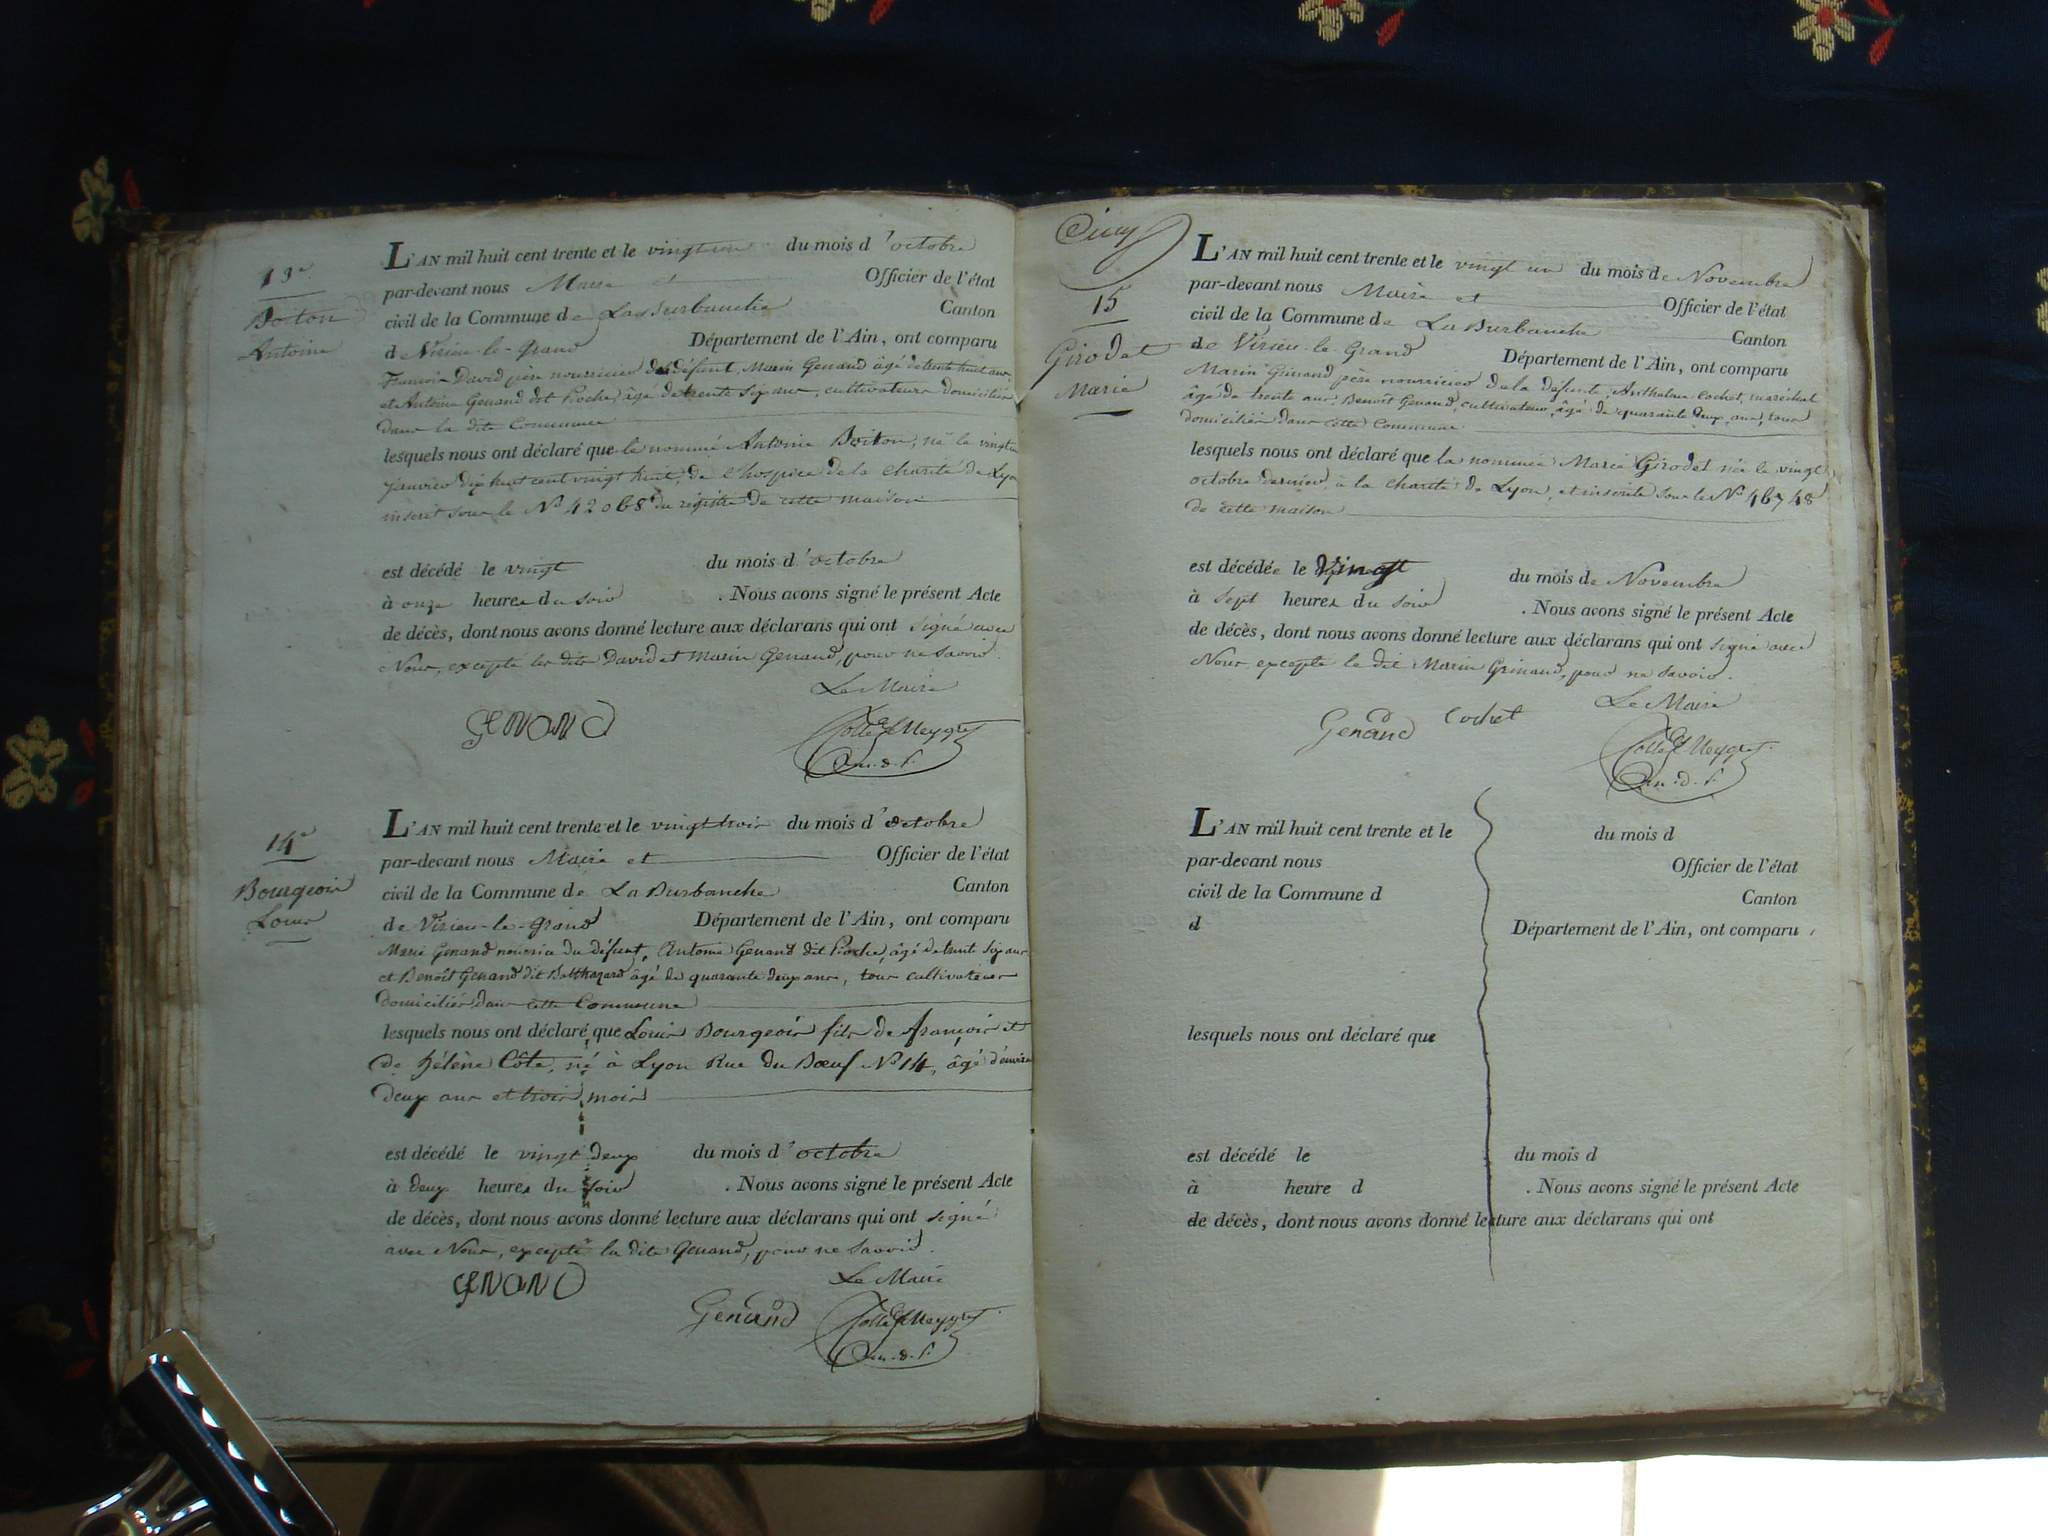 13e
Boiton
Antoine
L'AN mil huit cent trente et le vingt un du mois d'octobre
par-devant nous Maire et Officier de l'état
civil de la Commune de La Burbanche Canton
de Virieu-le-Grand Département de l'Ain, ont comparu
François David père nourricier du défunt, Marin Genand âgé de trente huit ans
et Antoine Genand dit Pioche, âgé de trente six ans, cultivateurs domiciliés
dans la dite Commune
lesquels nous ont déclaré que le nommé Antoine Boiton, né le vingt un
janvier dix huit cent vingt huit, de l'hospice de la charité de Lyon
inscrit sous le No 42068 du registre de cette maison
est décédé le vingt du mois d'octobre
à onze heures du soir . Nous avons signé le présent Acte
de décès, dont nous avons donné lecture aux déclarans qui ont signé avec
Nous, excepté les dits David et Marin Genand, pour ne savoir.
Le Maire
GENAND
14e
Bourgeois
Louis
L'AN mil huit cent trente et le vingt trois du mois d'octobre
par-devant nous Maire et Officier de l'état
civil de la Commune de La Burbanche Canton
de Virieu-le-Grand Département de l'Ain, ont comparu
Marie Genand du défunt, Antoine Genand dit Pioche, âgé de trente six ans
et Benoît Genand dit Balthazard âgé de quarante deux ans, tous cultivateurs
domiciliés dans cette Commune
lesquels nous ont déclaré que Louis Bourgeois fils de françois et
de hélène Côte, né à Lyon Rue du Bœuf No 14, âgé d'environ
deux ans et trois mois
est décédé le vingt deux du mois d'octobre
à deux heures du soir . Nous avons signé le présent Acte
de décès, dont nous avons donné lecture aux déclarans qui ont signé
avec Nous, excepté la dite Genand, pour ne savoir.
Le Maire
GENAND Genand
15
Girodet
Marie
L'AN mil huit cent trente et le vingt un du mois de Novembre
par-devant nous Maire et Officier de l'état
civil de la Commune de La Burbanche Canton
de Virieu-le-Grand Département de l'Ain, ont comparu
Marin Grinand père nourricier de la défunte, Anthelme Cochet, maréchal
âgé de trente ans Benoît Genand, cultivateur, âgé de quarante deux ans, tous
domiciliés dans cette Commune
lesquels nous ont déclaré que la nommée Marie Girodet née le vingt
octobre dernier, à la charité de Lyon, et inscrite sous le No 46748
de cette maison
est décédée le vingt du mois de Novembre
à sept heures du soir . Nous avons signé le présent Acte
de décès, dont nous avons donné lecture aux déclarans qui ont signé avec
Nous, excepté le dit Marin Grinand, pour ne savoir.
Le Maire
Genand Cochet
L'AN mil huit cent trente et le du mois d
par-devant nous Officier de l'état
civil de la Commune d Canton
d Département de l'Ain, ont comparu
lesquels nous ont déclaré que
est décédé le du mois d
à heure d . Nous avons signé le présent Acte
de décès, dont nous avons donné lecture aux déclarans qui ont